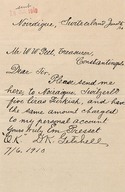 Noiraigue, Switzerland, June 26
Mr. W. W. Peet, Treasurer,
Constantinople
Dear Sir,
Please send me
here to Noiraigue, Switzerl'd
five Liras Turkish, and have
the same amount charged
to my personal account
Yours truly Em. Gressot
O.K. D.K. Getchell
7/6. 1913